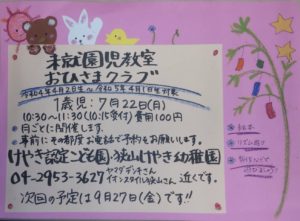 未就園児教室
おひさまクラブ
令和4年4月2日生～令和5年4月1日生対象
1歳児:7月22日(月)
10:30～11:30(10:15受付)費用100円
月ごとに開催します。
事前にその都度お電話で予約をお願いします。
けやき認定こども園・狭山けやき幼稚園
04-2953-3627
ヤマダデンキさん
イオンスタイル狭山さん
近くです。
次回の予定は9月27日(金)です!!
絵本
リズム遊び